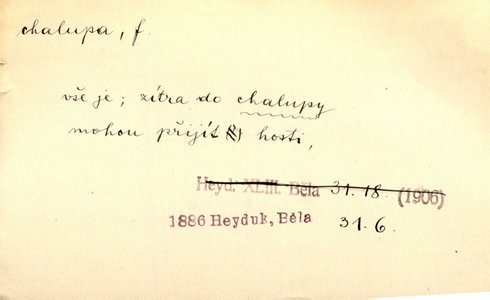 chalupa, f.
vše je; zítra do chalupy
mohou přijít hosti,
Heyd. XLIII. Běla 31.18. (1906)
1886 Heyduk, Běla 31.6.